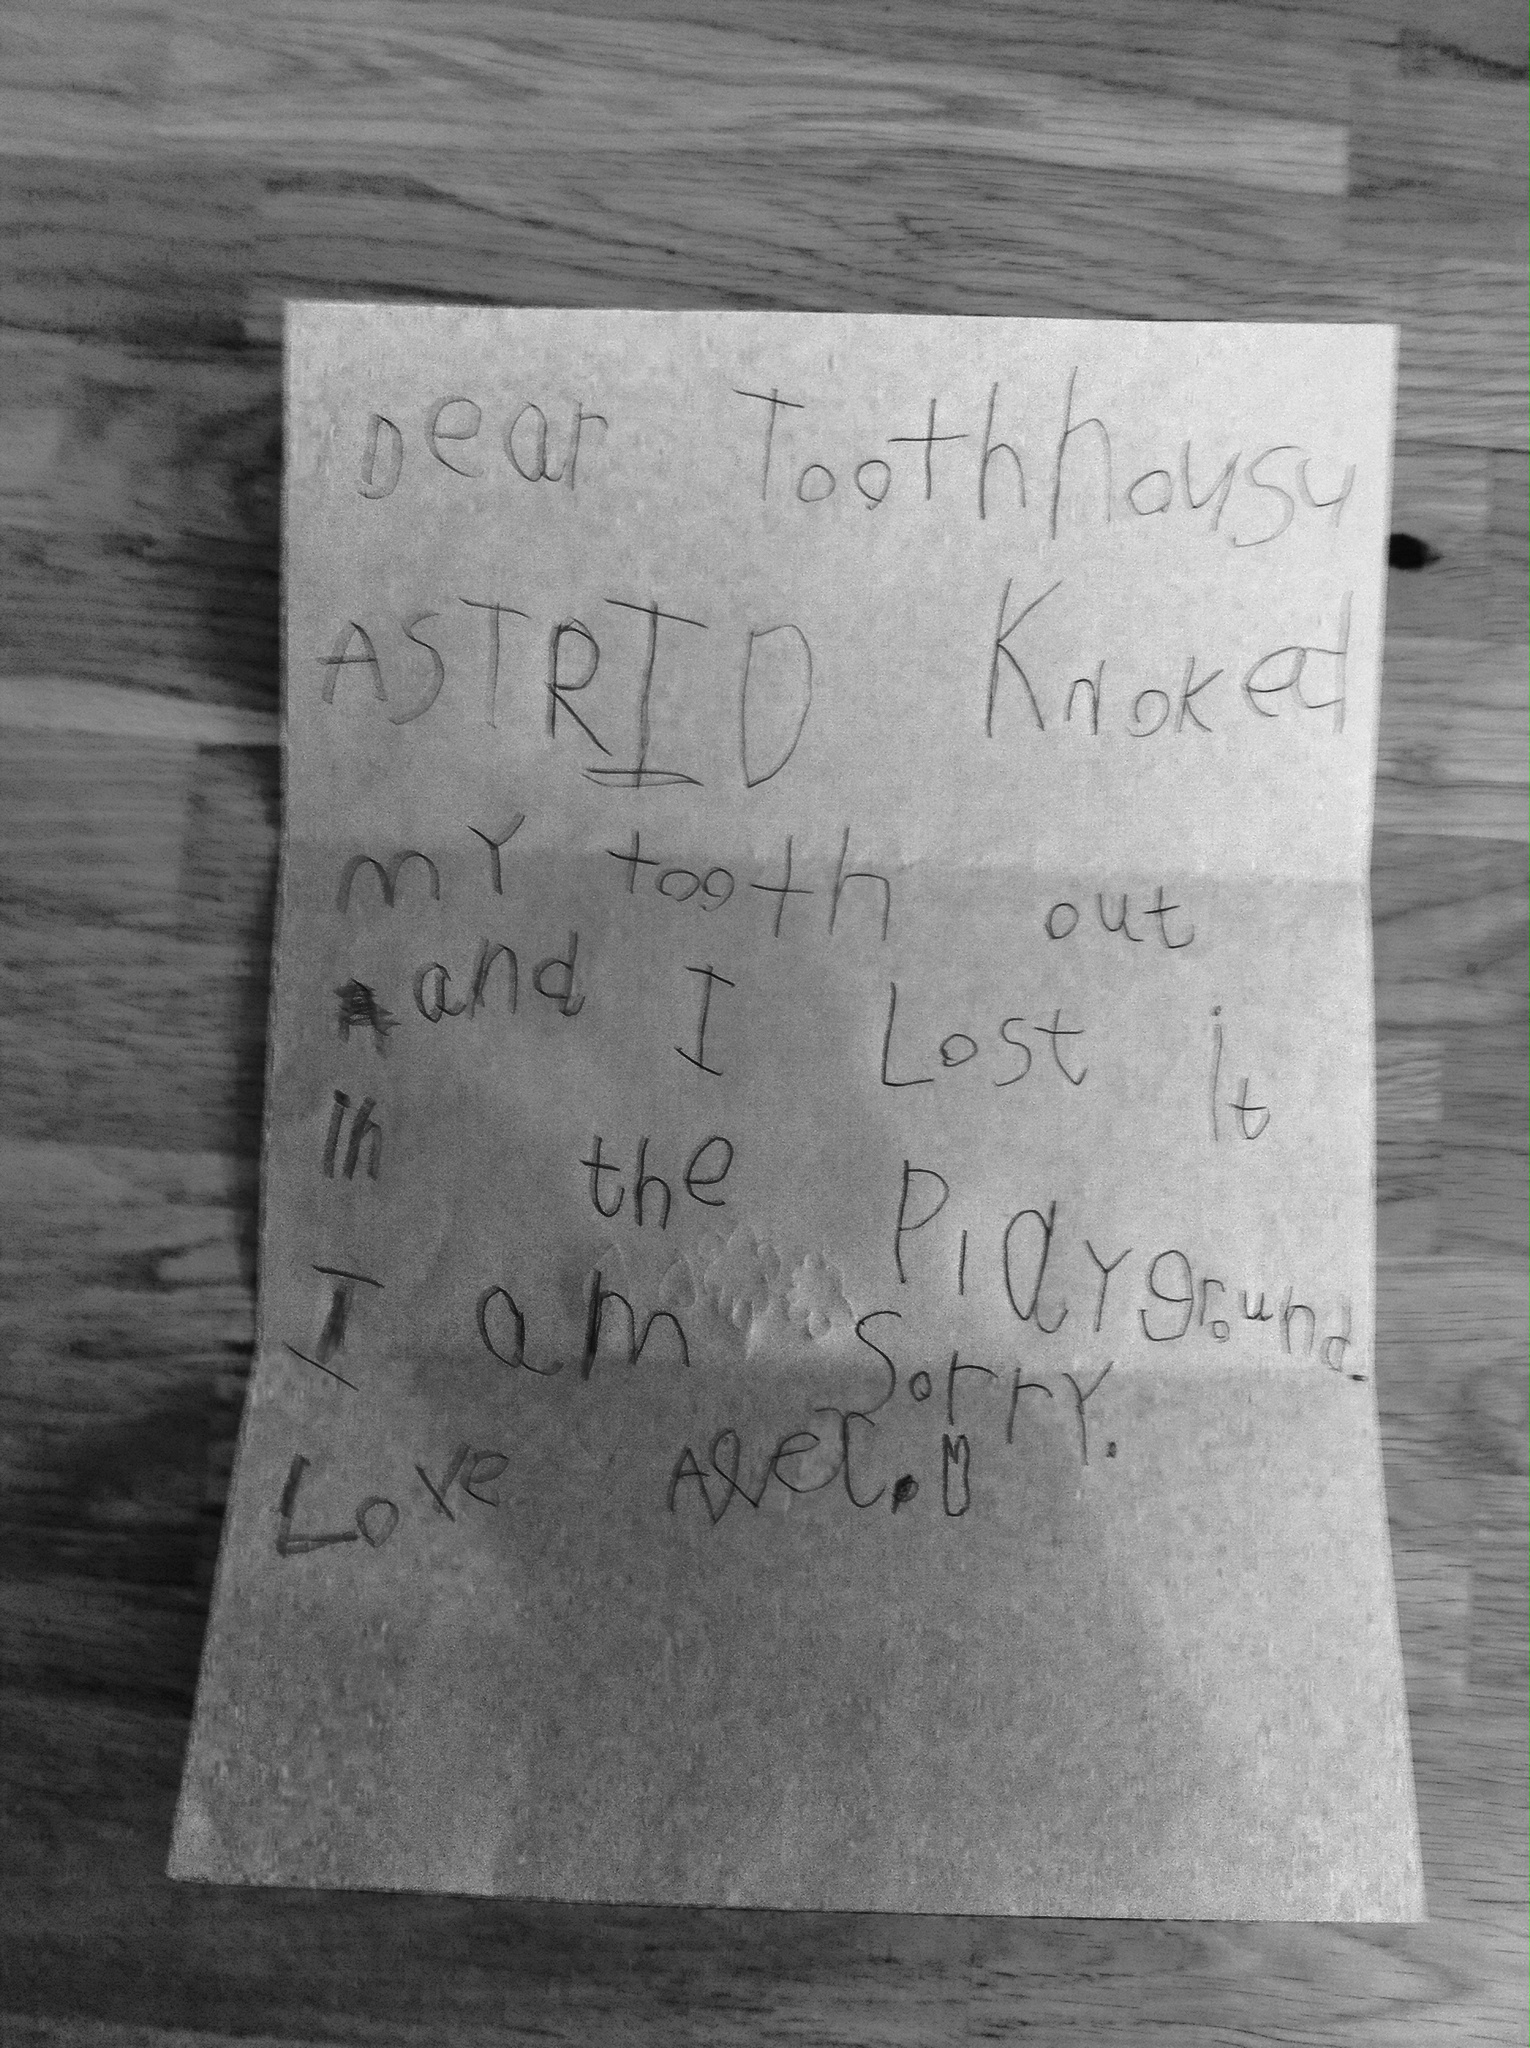 Dear Toothhousu
ASTRID Knoked
mY tooth out
and I Lost it
in the Playground.
I am Sorry.
Love